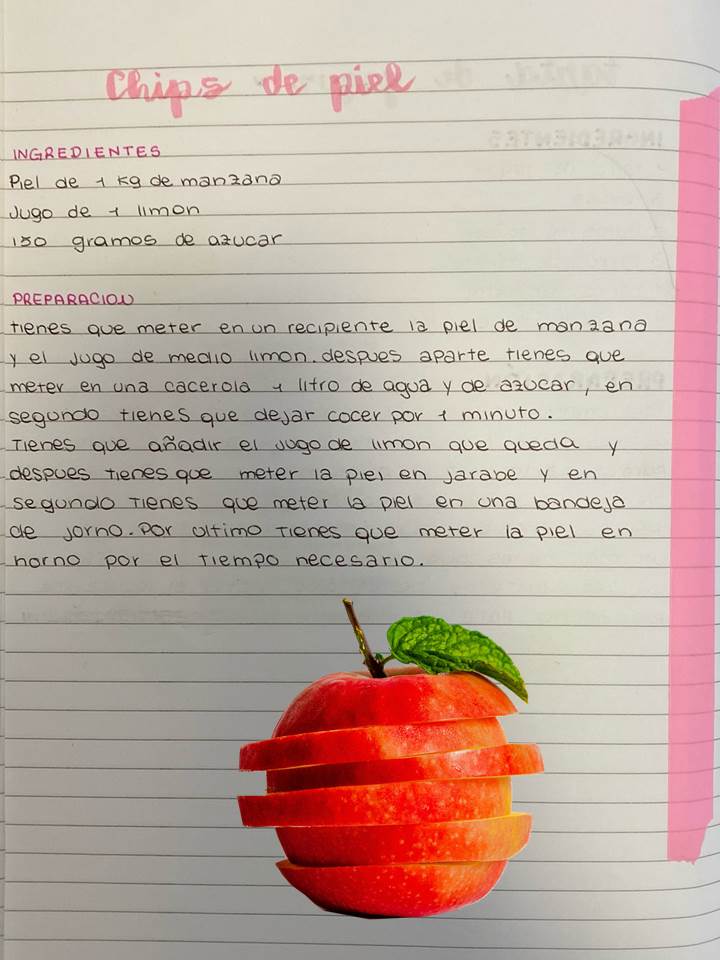 Chips de piel
INGREDIENTES
Piel de 1 kg de manzana
Jugo de 1 limon
150 gramos de azucar
PREPARACION
tienes que meter en un recipiente la piel de manzana
y el jugo de medio limon. despues aparte tienes que
meter en una cacerola 1 litro de agua y de azucar, en
segundo tienes que dejar cocer por 1 minuto.
Tienes que añadir el jugo de limon que queda y
despues tienes que meter la piel en jarabe y en
segundo tienes que meter la piel en una bandeja
de jorno. Por ultimo tienes que meter la piel en
horno por el tiempo necesario.